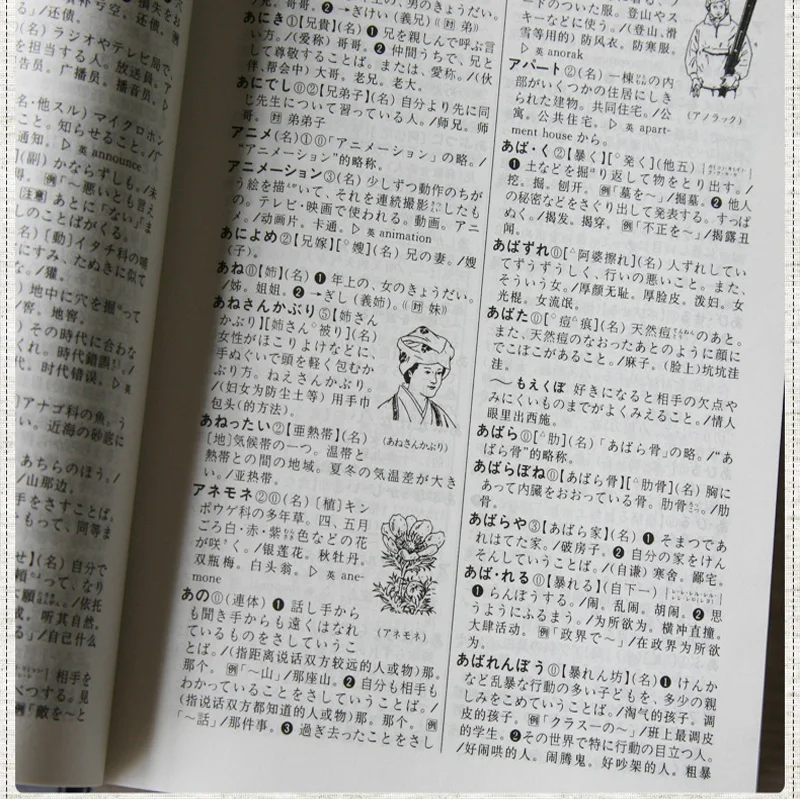 る」/还债。
(名) ラジオやテレビ局で、
を担当する人。放送員。ア
告员。广播员。播音员。
名・他スル) マイクロホン
こと。知らせること。/广
通知。▷ 英 announce
(副) かならずしも。/未
得。 例「〜悪いとも言え
注意 あとに「ない」ま
しのことばがくる。
名)〔動〕イタチ科の哺
にすみ、たぬきに似て
な。/獾。
地中に穴を掘って
/窖。地窖。
その時代に合わな
くれ。時代錯誤。/
代。时代错误。▷ 英
)アナゴ科の魚。う
い。近海の砂底に
あちらのほう。/
/山那边。
手をさすことば。
もって、同等ま
せ】(名) 自分で
って、なり
不願。/依托
成。听其自然。
る」/自己什么
相手を
べつする。見
例「敵を〜と
兄哥。哥哥。❷→ぎけい(義兄)《対 弟》
あにき①【兄貴】(名) ❶ 兄を親しんで呼ぶ言
い方。/(爱称) 哥哥。❷ 仲間うちで、兄と
して尊敬することば。または、愛称。/(伙
伴、帮会中) 大哥。老兄。老大。
あにでし⓪②【兄弟子】(名) 自分より先に同
じ先生について習っている人。/师兄。师
哥。 対 弟弟子
アニメ(名)①⓪「アニメーション」の略。/
“アニメーション”的略称。
アニメーション③(名) 少しずつ動作のちが
う絵を描いて、それを連続撮影したも
の。テレビ・映画で使われる。動画。アニ
メ。/动画片。卡通。▷ 英 animation
あによめ②【兄嫁】【°嫂】(名) 兄の妻。/嫂
(子)。
あね⓪【姉】(名) ❶ 年上の、女のきょうだい。
/姊。姐姐。❷→ぎし(義姉)。《対 妹》
あねさんかぶり⑤【姉さん
かぶり】【姉さん°被り】(名)
女性がほこりよけなどに、
手ぬぐいで頭を軽く包むか
ぶり方。ねえさんかぶり。
/(妇女为防尘土等) 用手巾
包头(的方法)。
(あねさんかぶり)
あねったい②【亜熱帯】(名)
〔地〕気候帯の一つ。温帯と
熱帯との間の地域。夏冬の気温差が大き
い。/亚热带。
アネモネ②⓪(名)〔植〕キン
ポウゲ科の多年草。四、五月
ごろ白・赤・紫色などの花
が咲く。/银莲花。秋牡丹。
双瓶梅。白头翁。▷ 英 ane-
mone
(アネモネ)
あの⓪(連体) ❶ 話し手から
も聞き手からも遠くはなれ
ているものをさしていうこ
とば。/(指距离说话双方较远的人或物)那。
那个。 例「〜山」/那座山。❷ 自分も相手も
わかっていることをさしていうことば。/
(指说话双方都知道的人或物)那。那个。 例
「〜話」/那件事。❸ 過ぎ去ったことをさし
ードのついた服。登山やス
キーなどに使う。/(登山、滑
雪等用的) 防风衣。防寒服。
▷ 英 anorak
(アノラック)
アパート②(名) 一棟の内
部がいくつかの住居にしき
られた建物。共同住宅。/公
寓。公共住宅。▷ 英 apart-
ment house から。
あば・く②【暴く】【°発く】(他五)
❶ 土などを掘り返して物をとり出す。/
挖。掘。刨开。 例「墓を〜」/掘墓。❷ 他人
の秘密などをさぐり出して発表する。すっぱ
ぬく。/揭发。揭穿。 例「不正を〜」/揭露丑
闻。
あばずれ⓪【△阿婆擦れ】(名) 人ずれしてい
てずうずうしく、行いの悪いこと。また、
そういう女。/厚颜无耻。厚脸皮。泼妇。女
光棍。女流氓。
あばた⓪【°痘△痕】(名) 天然痘のあと。
また、天然痘のなおったあとのように顔に
でこぼこがあること。/麻子。(脸上)坑坑洼
洼。
〜もえくぼ 好きになると相手の欠点や
みにくいものまでがよくみえること。/情人
眼里出西施。
あばら⓪【△肋】(名)「あばら骨」の略。/“あ
ばら骨”的略称。
あばらぼね⓪【あばら骨】【△肋骨】(名) 胸に
あって内臓をおおっている骨。肋骨。/肋
骨。
あばらや③【あばら家】(名) ❶ そまつであ
れはてた家。/破房子。❷ 自分の家をけん
そんしていうことば。/(自谦) 寒舍。鄙宅。
あば・れる⓪【暴れる】(自下一)
❶ らんぼうする。/闹。乱闹。胡闹。❷ 思
うようにふるまう。/为所欲为。横冲直撞。
大肆活动。 例「政界で〜」/在政界为所欲
为。
あばれんぼう⓪【暴れん坊】(名) ❶ けんか
など乱暴な行動の多い子どもを、多少の親
しみをこめていうことば。/淘气的孩子。调
皮的孩子。 例「クラス一の〜」/班上最调皮
的学生。❷その世界で特に行動の目立つ人。
/好闹哄的人。闹腾鬼。好吵架的人。粗暴